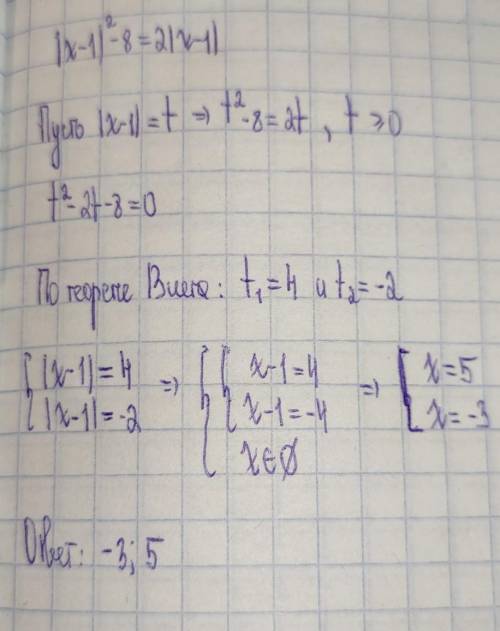 |x-1|²-8=2|x-1|
Пусть |x-1|=t ⇒ t²-8=2t, t≥0
t²-2t-8=0
По теореме Виета: t₁=4 и t₂=-2
{ |x-1|=4 ⇒ { { x-1=4 ⇒ [ x=5
|x-1|=-2 x-1=-4 x=-3
x∈∅
Ответ: -3; 5